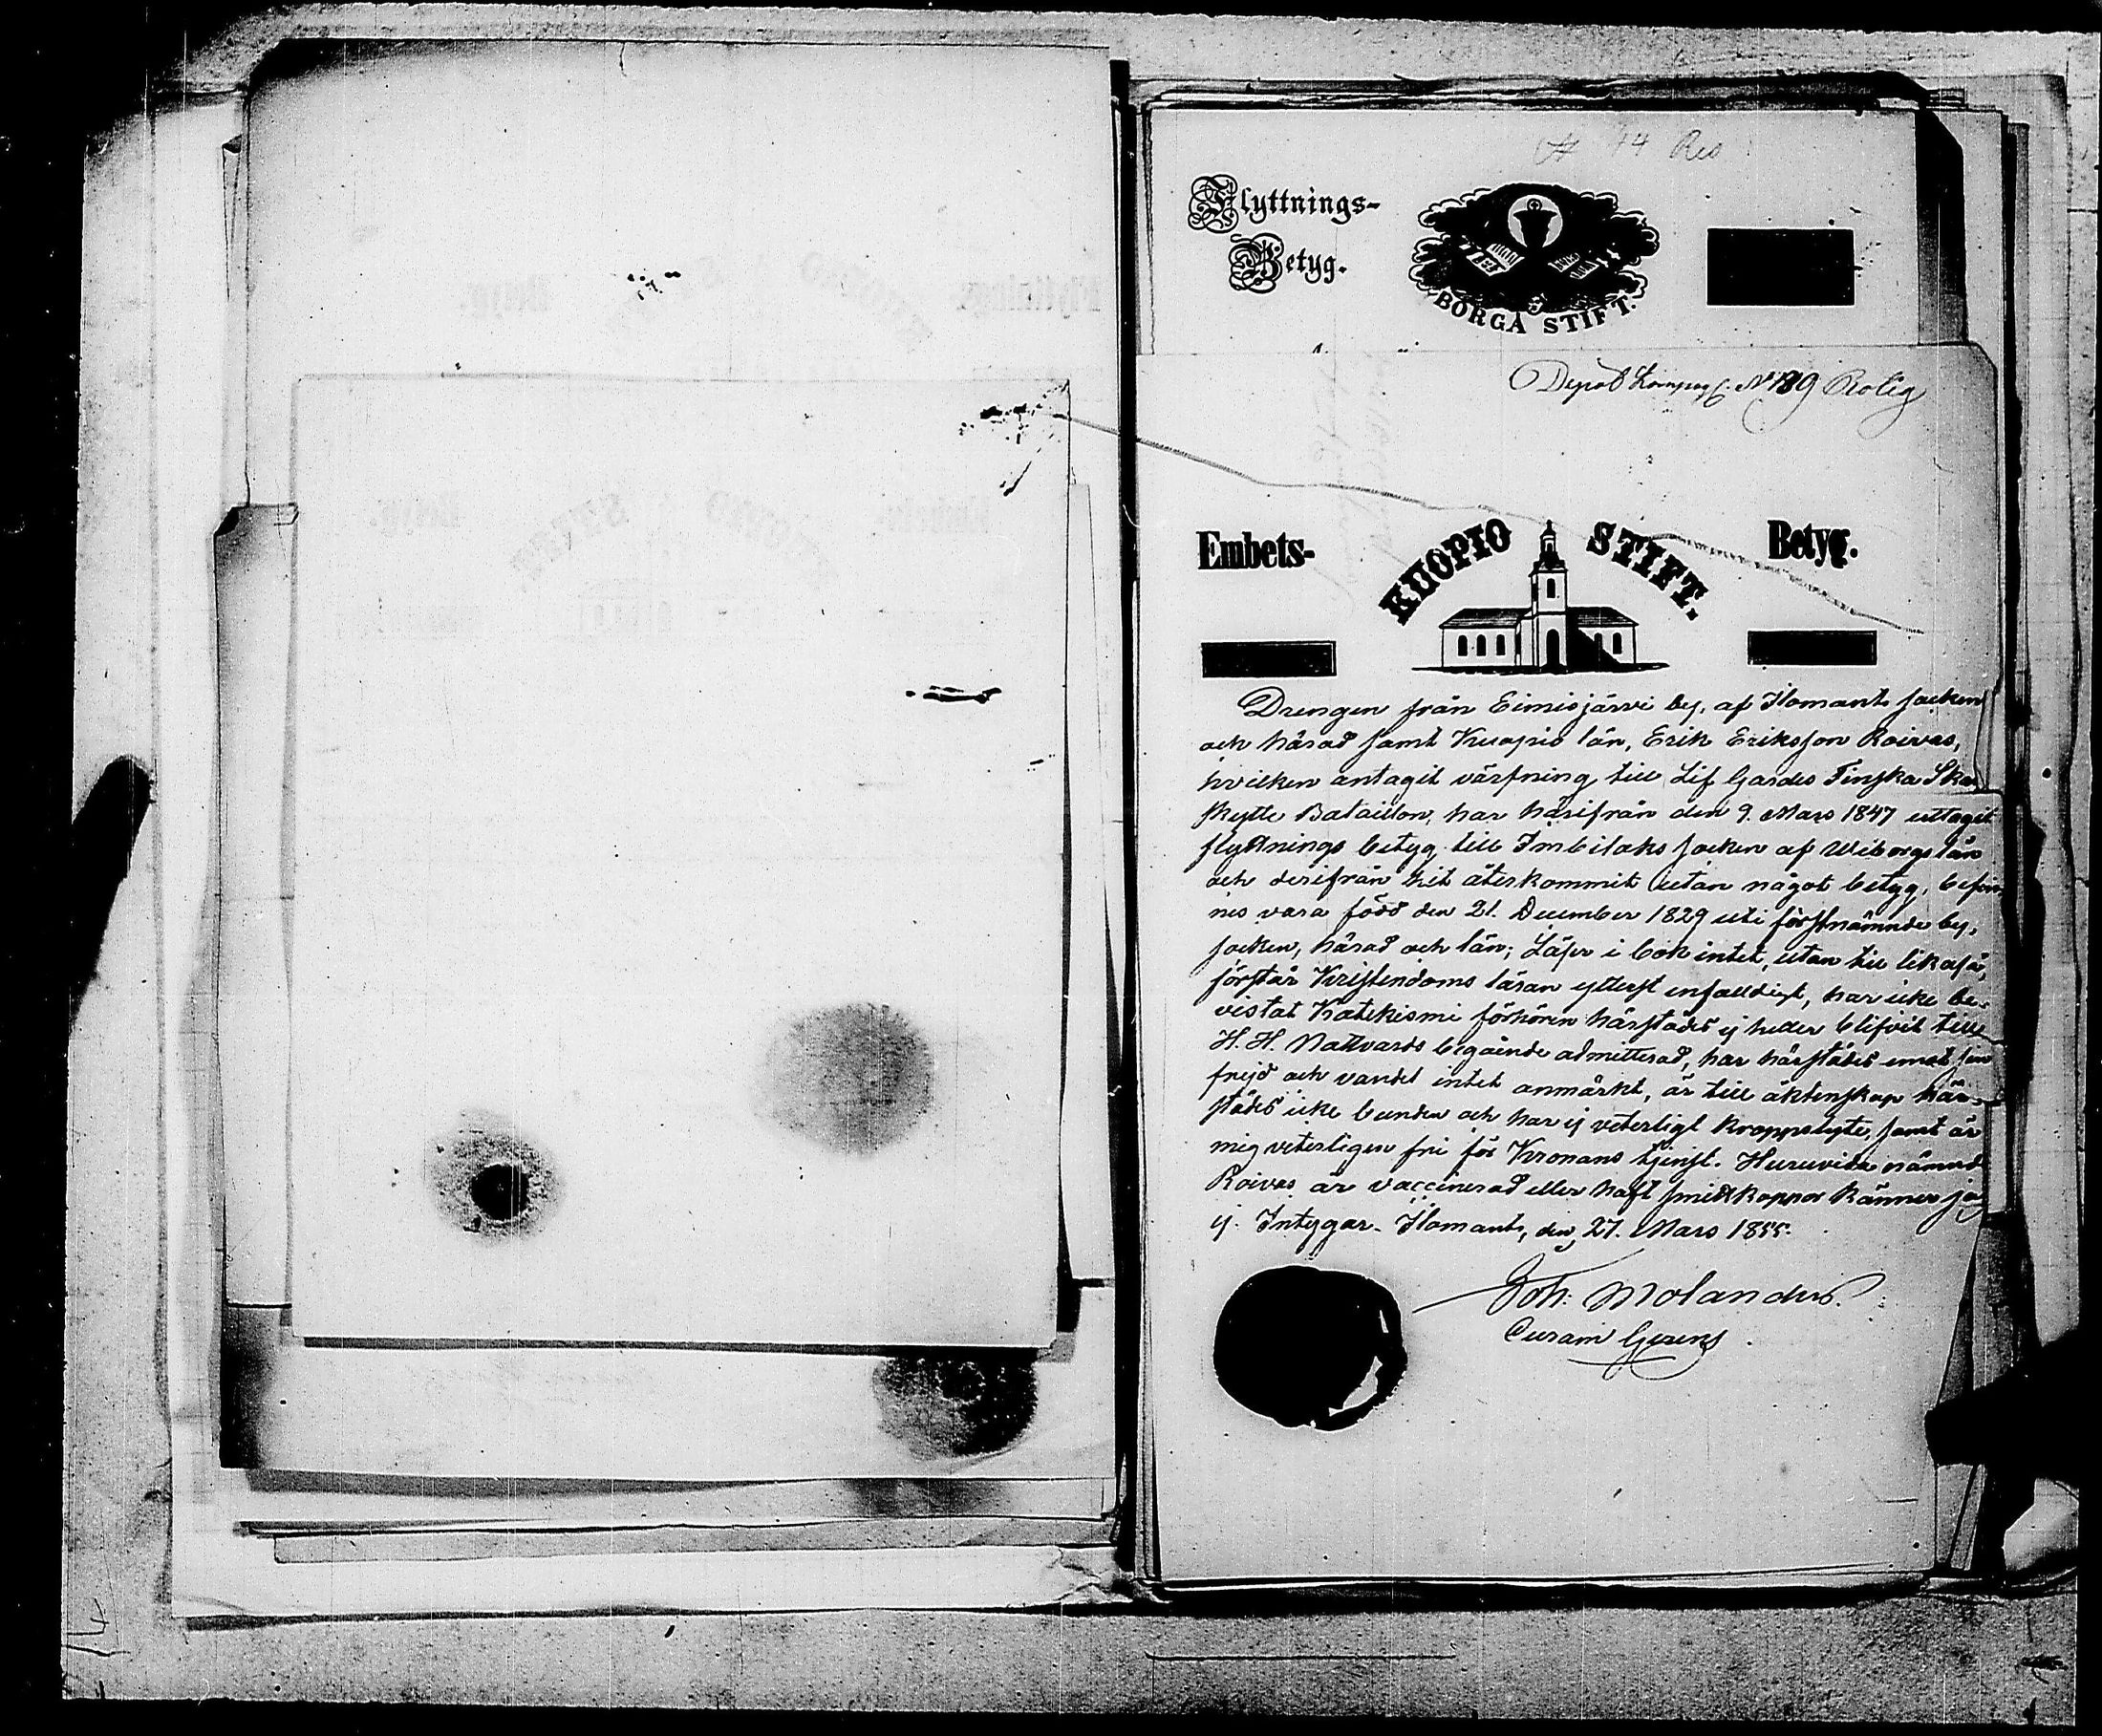 44 Res
Flyttnings-
Betyg.
BORGÅ STIFT.
Depot Kompag: N 189 Rolig
Embets- KUOPIO STIFT. Betyg.
Drengen från Eimisjärvi by, af Ilomants socken
och härad samt Kuopio län, Erik Eriksson Roivas,
hvilken antagit värfning till Lif Gardes Finska Skar
skytte Bataillon, har härifrån den 9. Mars 1847 uttagit
flyttnings betyg till Imbilaks socken af Wiborgs län
och derifrån hit återkommit utan något betyg, befin
nes vara född den 21. December 1829 uti förstnämnde by,
socken, härad och län; Läser i bok intet, utan till likaså,
förstår Kristendoms läran ytterst enfaldigt, har icke be-
vistat Katekismi förhören härstädes ej heller blifvit till
H. H. Nattvards begående admitterad, har härstädes emot sin
frejd och vandel intet anmärkt, är till äktenskap här-
städes icke bunden och har ej veterligt kroppslyte, samt är
mig veterligen fri för Kronans tjenst. Huruvida nämnde
Roivas är vaccinerad eller haft smittkoppor känner jag
ej. Intygar. Ilomants, den 27. Mars 1855.
Joh: Molander.
Curam Gerens